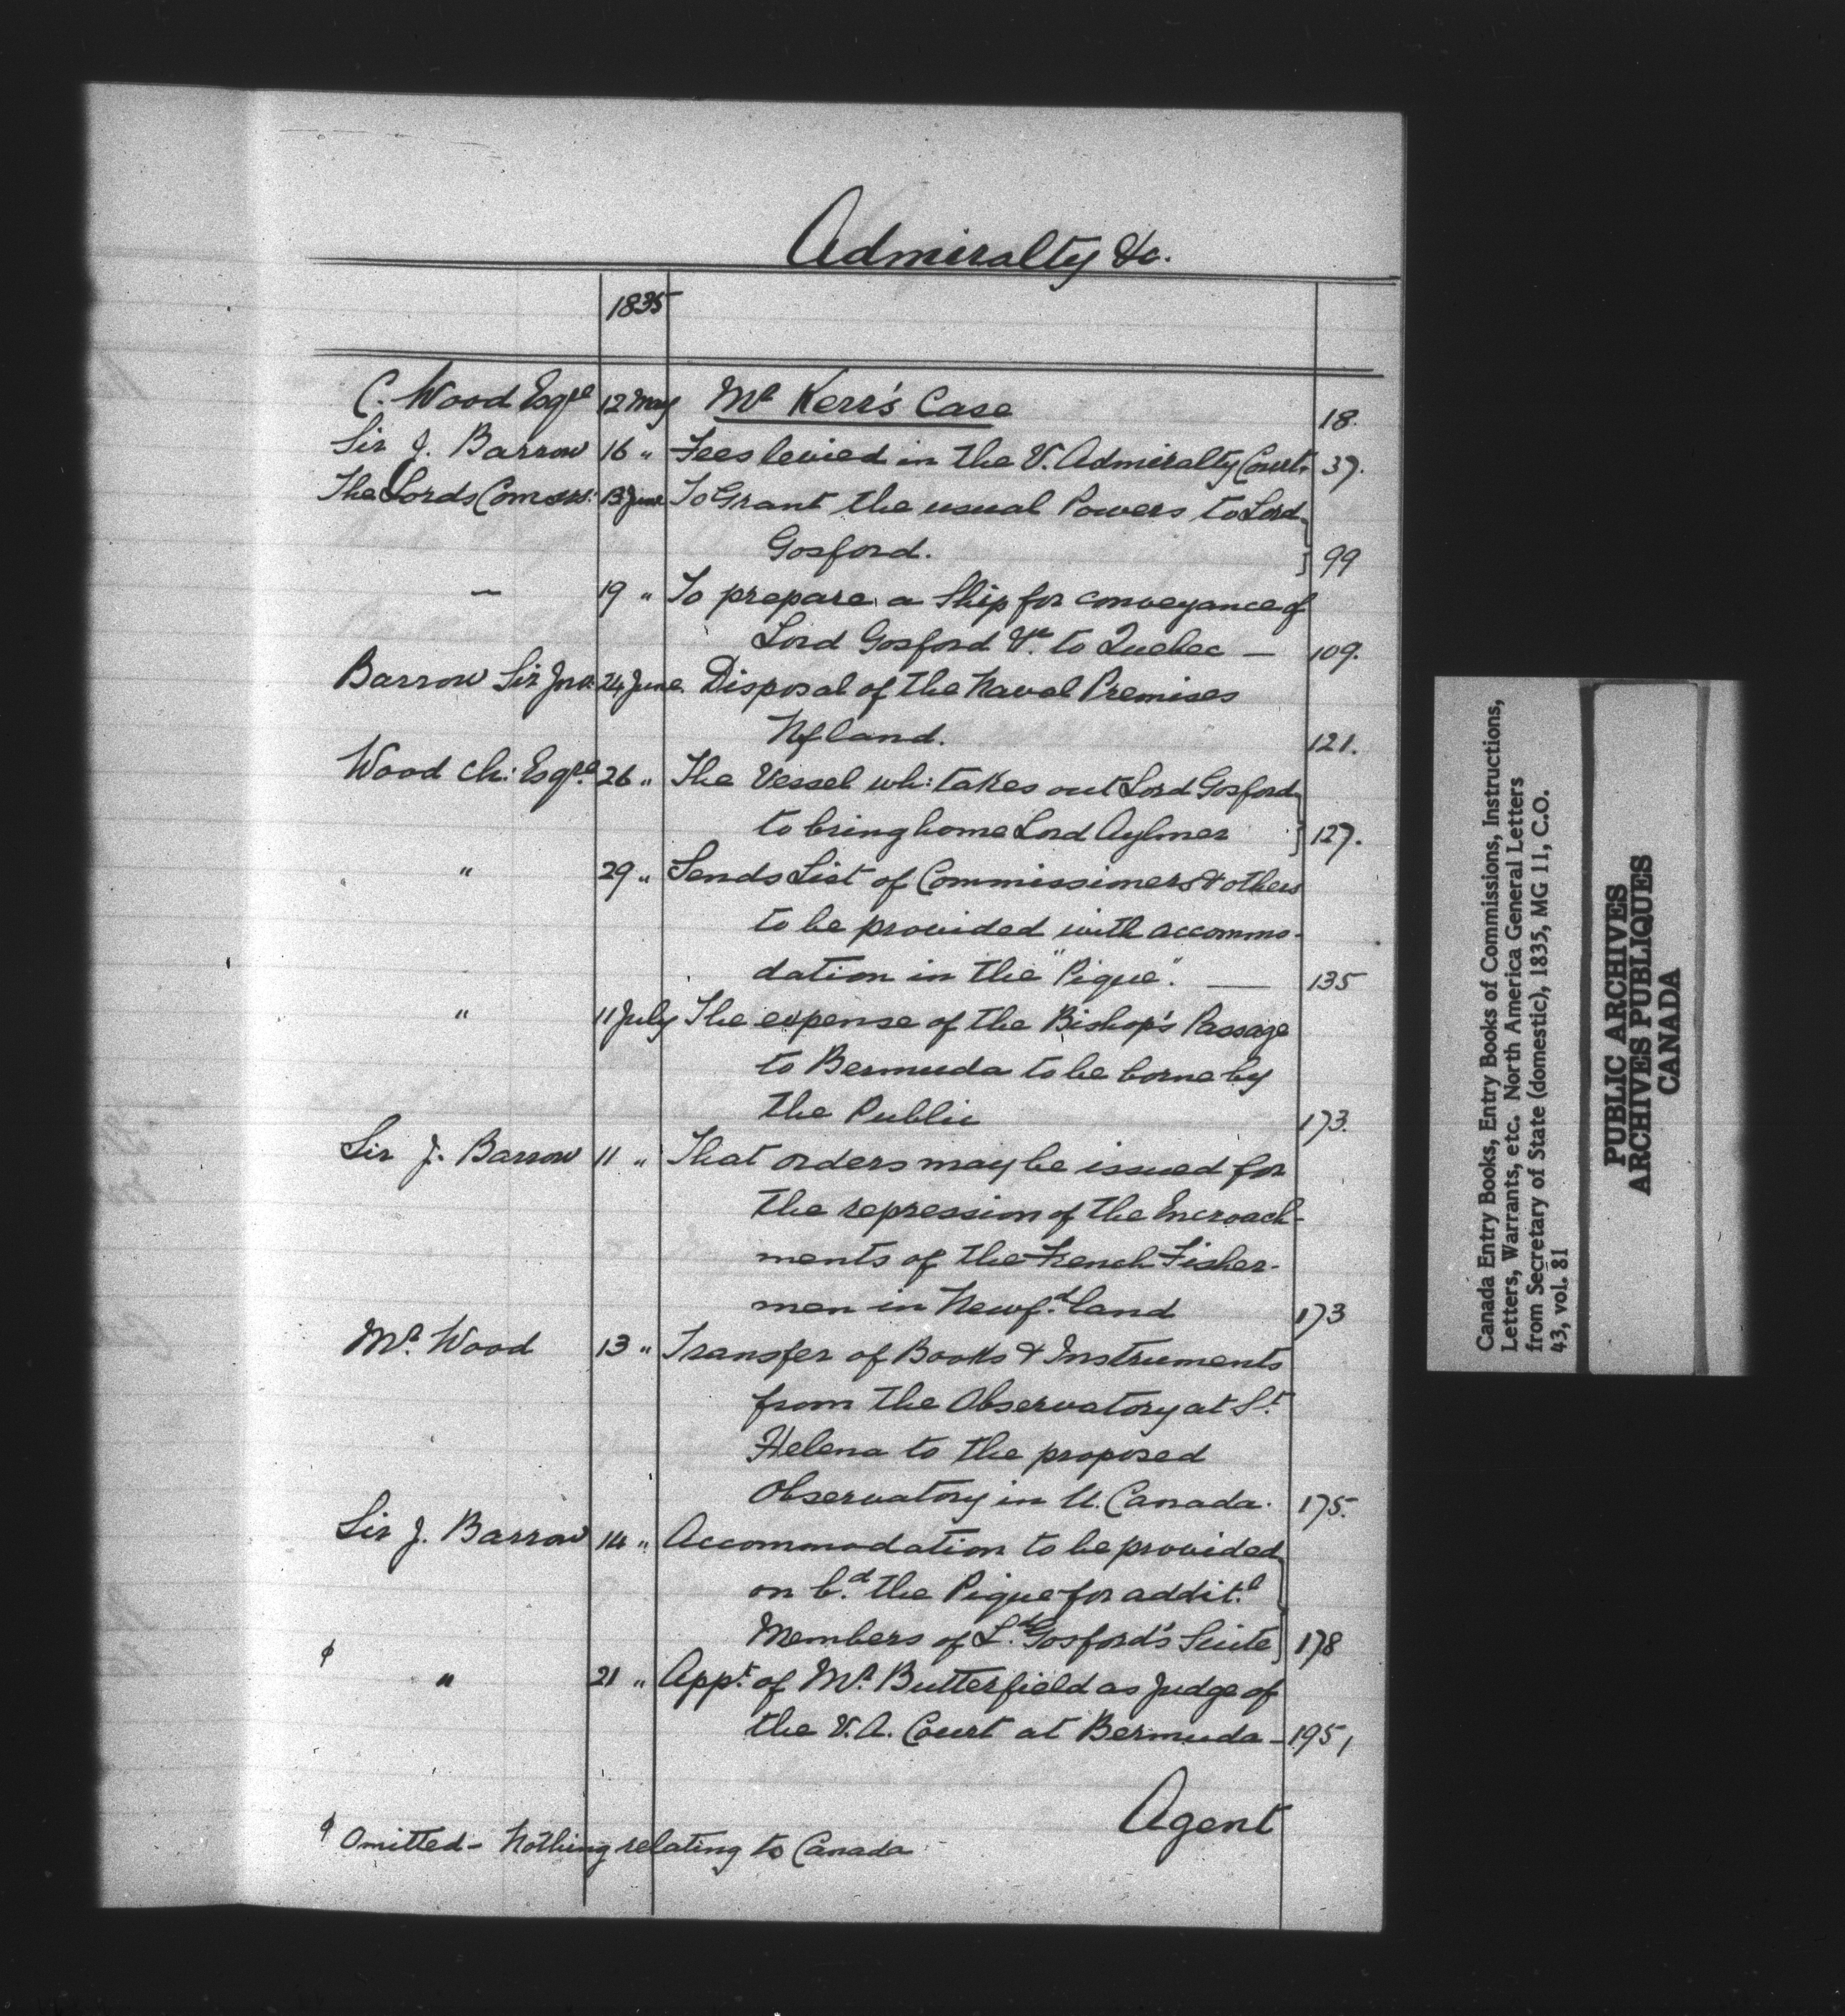 Admiralty &c.
1835
C. Wood Esqre 12 May Mr Kerr's Case 18.
Sir J. Barrow 16 " Fees levied in the V. Admiralty Court. 37.
The Lords Comrs: 13 June To Grant the usual Powers to Lord
Gosford. } 99
— 19 " To prepare a Ship for conveyance of
Lord Gosford &c. to Quebec — 109.
Barrow Sir Jno. 24 June. Disposal of the Naval Premises
Nfland. 121.
Wood Ch: Esqre. 26 " The Vessel wh: takes out Lord Gosford
to bring home Lord Aylmer } 127.
" 29 " Sends List of Commissioners & others
to be provided with accommo-
dation in the "Pique". — 135
" 11 July The expense of the Bishop's Passage
to Bermuda to be borne by
the Public 173.
Sir J. Barrow 11 " That orders may be issued for
the repression of the Encroach-
ments of the French Fisher-
men in Newfd.land 173
Mr. Wood 13 " Transfer of Books & Instruments
from the Observatory at St.
Helena to the proposed
Observatory in U. Canada. 175.
Sir J. Barrow 14 " Accommodation to be provided
on bd. the Pique for addit.l
Members of Ld. Gosford's Suite } 178
φ " 21 " Appt. of Mr. Butterfield as Judge of
the V. A. Court at Bermuda — 195,
Agent
φ Omitted - Nothing relating to Canada
Canada Entry Books, Entry Books of Commissions, Instructions,
Letters, Warrants, etc. North America General Letters
from Secretary of State (domestic), 1835, MG 11, C.O.
43, vol. 81
PUBLIC ARCHIVES
ARCHIVES PUBLIQUES
CANADA